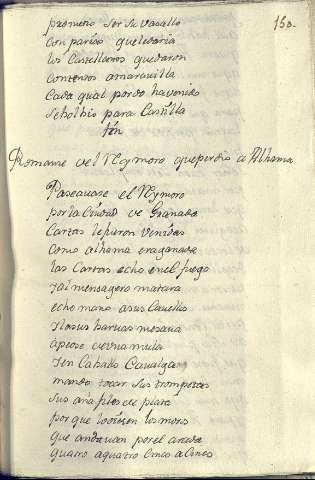 153.
prometio ser su vasallo
con parias que le daria
los Castellanos quedaron
contentos a maravilla
Cada qual por do havenido
se bolbio para Castilla
fin
Romance del Rey moro que perdio a Alhama
Paseauase el Rey moro
por la Ciudad de Granada
Cartas le fueron venidas
como alhama era ganada
las Cartas echo en el fuego
y al mensagero matara
echo mano a sus Cauellos
y las sus baruas mesaua
apeose de una mula
y en Caballo Caualga
mando tocar sus trompetas
sus añafiles de plata
por que lo oiesen los moros
que andauan por el arada
quatro a quatro Cinco a Cinco